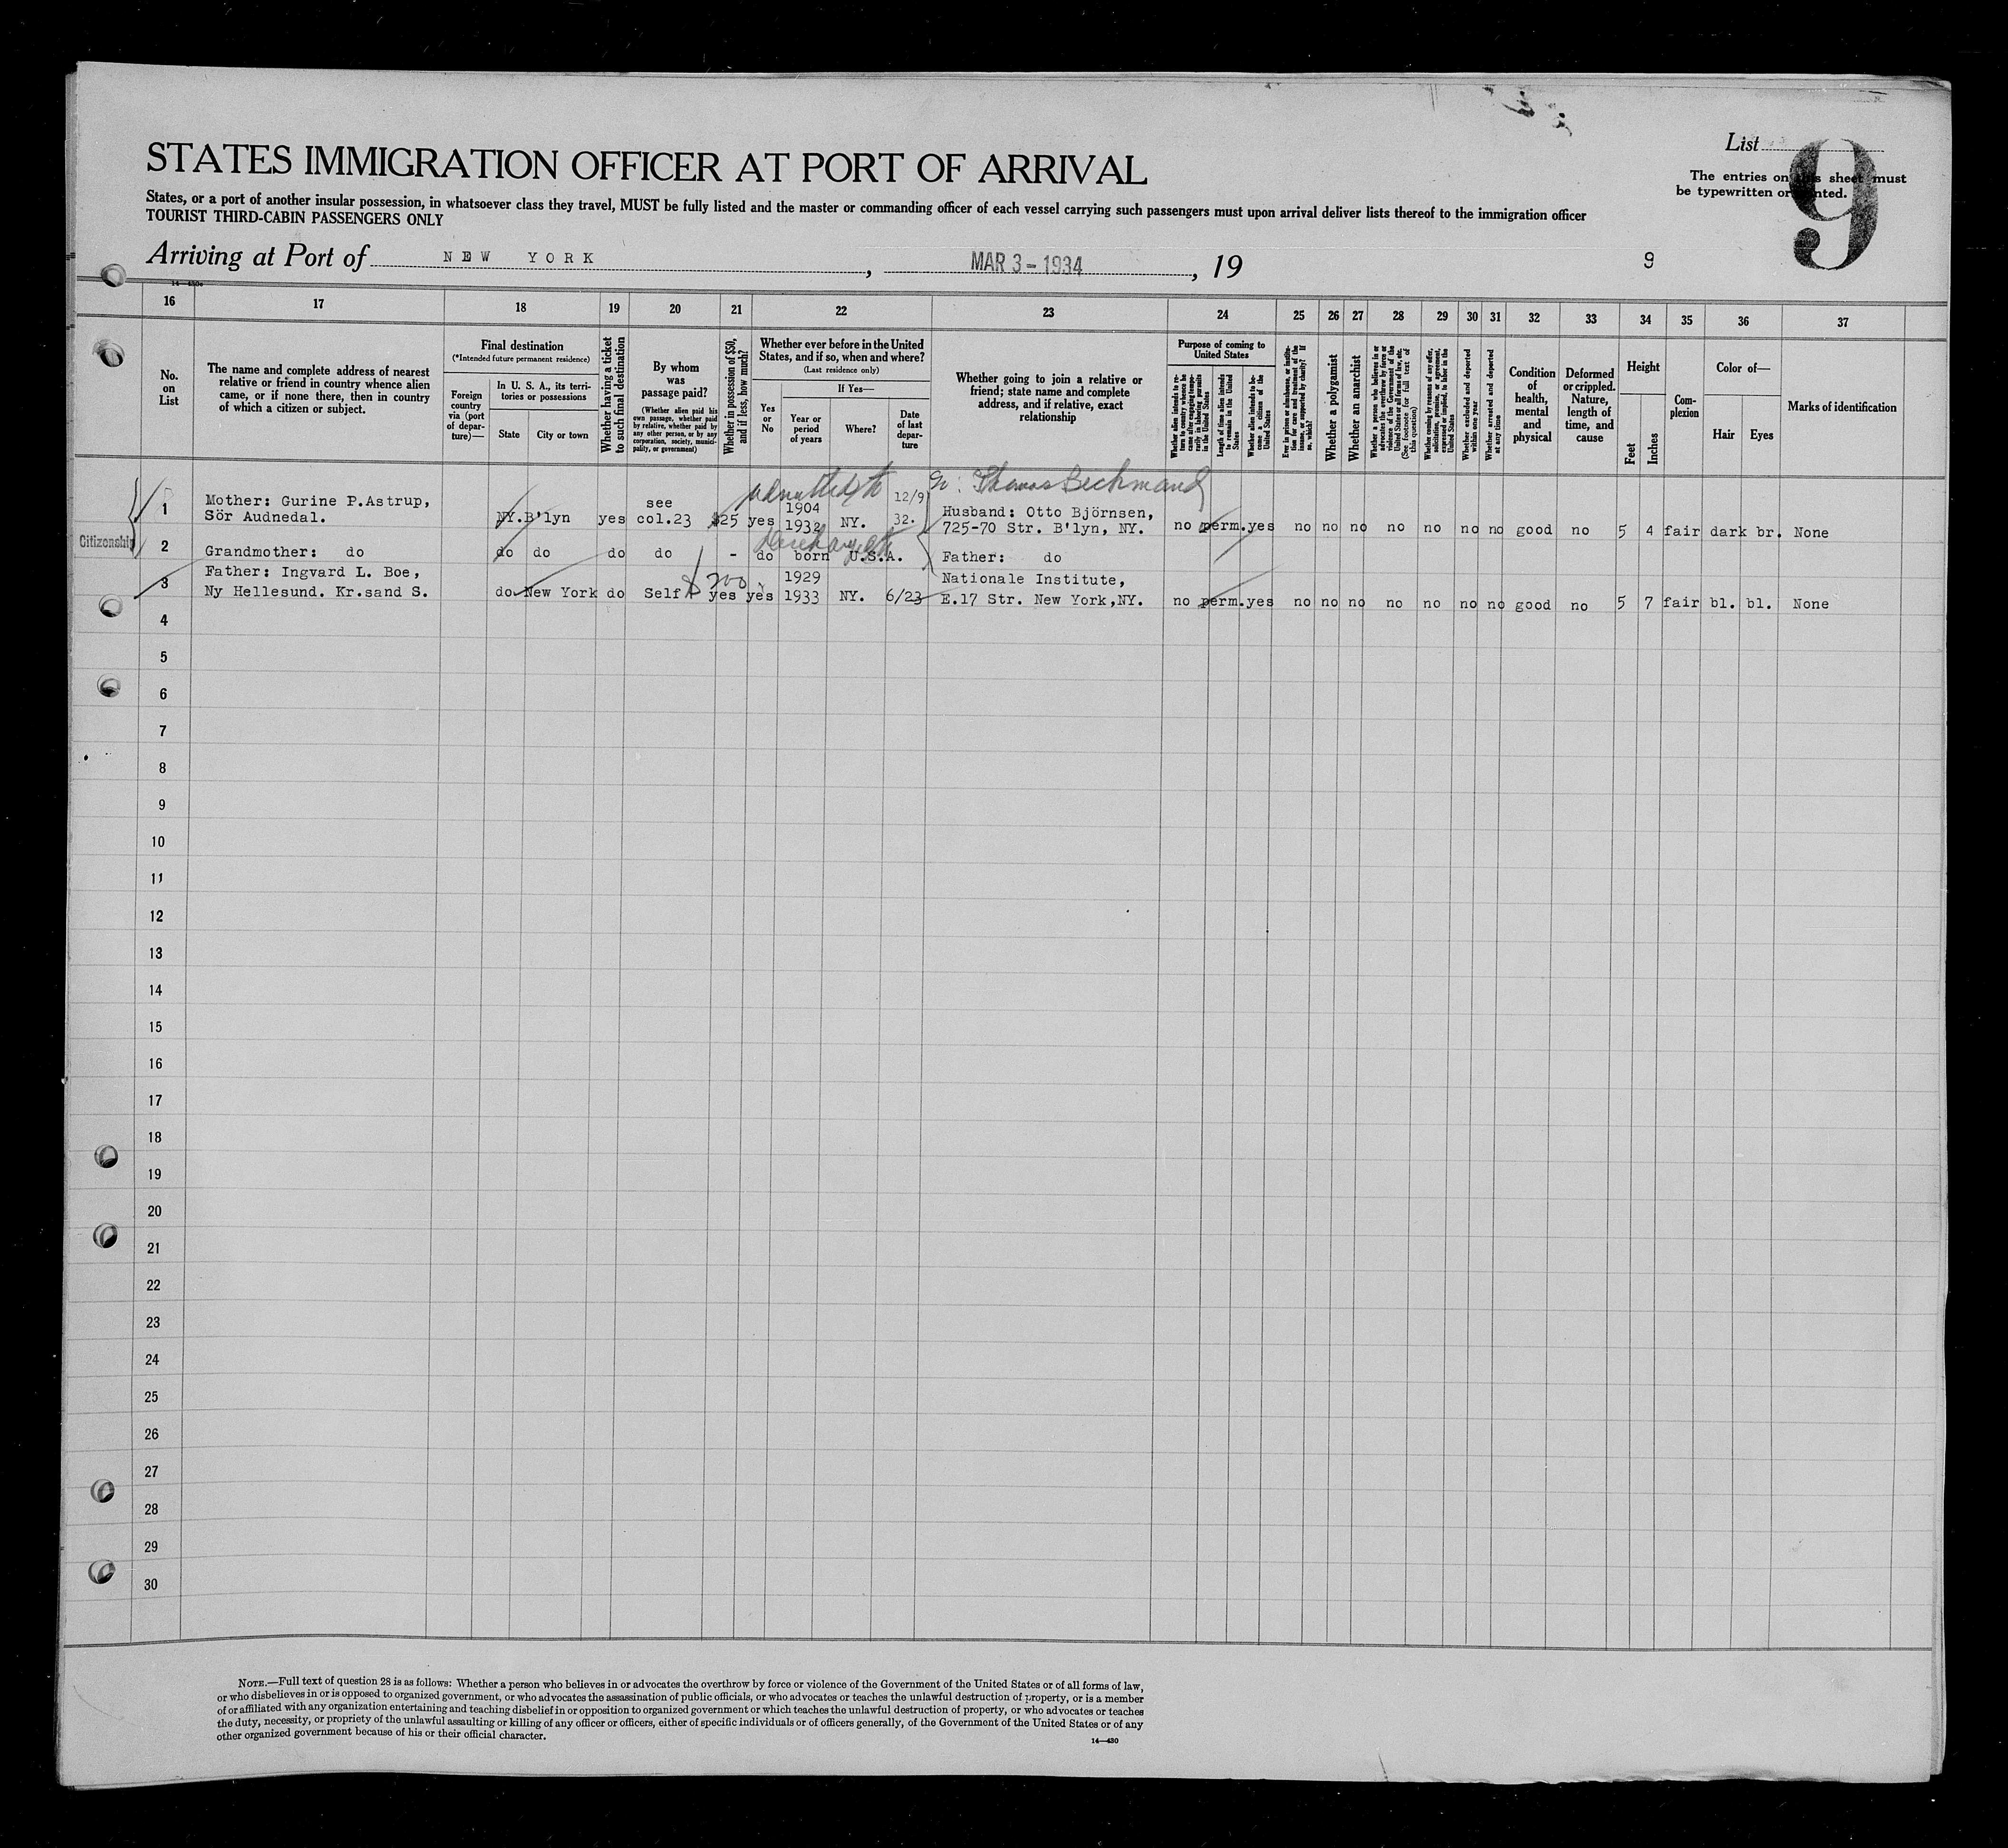 List
9
The entries on this sheet must
be typewritten or printed.
STATES IMMIGRATION OFFICER AT PORT OF ARRIVAL
States, or a port of another insular possession, in whatsoever class they travel, MUST be fully listed and the master or commanding officer of each vessel carrying such passengers must upon arrival deliver lists thereof to the immigration officer
TOURIST THIRD-CABIN PASSENGERS ONLY
Arriving at Port of NEW YORK, MAR 3 - 1934, 19
9
16 17 18 19 20 21 22 23 24 25 26 27 28 29 30 31 32 33 34 35 36 37
No. on List
The name and complete address of nearest
relative or friend in country whence alien
came, or if none there, then in country
of which a citizen or subject.
Final destination
(*Intended future permanent residence)
Foreign country via (port of departure)—
In U. S. A., its territories or possessions
State
City or town
Whether having a ticket
to such final destination
By whom was passage paid?
(Whether alien paid his own passage, whether paid by relative, whether paid by any other person, or by any corporation, society, municipality, or government)
Whether in possession of $50,
and if less, how much?
Whether ever before in the United
States, and if so, when and where?
(Last residence only)
Yes or No
If Yes—
Year or period of years
Where?
Date of last departure
Whether going to join a relative or
friend; state name and complete
address, and if relative, exact
relationship
Purpose of coming to
United States
Whether alien intends to return to country whence he came after engaging temporarily in laboring pursuits in the United States
Length of time alien intends to remain in the United States
Whether alien intends to become a citizen of the United States
Ever in prison or almshouse, or institution for care and treatment of the insane, or supported by charity? If so, which?
Whether a polygamist
Whether an anarchist
Whether a person who believes in or advocates the overthrow by force or violence of the Government of the United States or all forms of law, etc. (See footnote for full text of this question)
Whether coming by reason of any offer, solicitation, promise, or agreement, expressed or implied, to labor in the United States
Whether excluded and deported within one year
Whether arrested and deported at any time
Condition of health, mental and physical
Deformed or crippled. Nature, length of time, and cause
Height
Feet
Inches
Complexion
Color of—
Hair
Eyes
Marks of identification
admitted to
Thomas Beckmand
1 Mother: Gurine P.Astrup, Sör Audnedal. NY. B'lyn yes see col.23 $25 yes 1904 1932 NY. 12/9 32. Husband: Otto Björnsen, 725-70 Str. B'lyn, NY. no perm. yes no no no no no no no good no 5 4 fair dark br. None
Citizenship
2 Grandmother: do do do do do - do born U.S.A. Father: do
3 Father: Ingvard L. Boe, Ny Hellesund. Kr.sand S. do New York do Self 200 yes yes 1929 1933 NY. 6/23 Nationale Institute, E.17 Str. New York,NY. no perm. yes no no no no no no no good no 5 7 fair bl. bl. None
4
5
6
7
8
9
10
11
12
13
14
15
16
17
18
19
20
21
22
23
24
25
26
27
28
29
30
NOTE.—Full text of question 28 is as follows: Whether a person who believes in or advocates the overthrow by force or violence of the Government of the United States or of all forms of law,
or who disbelieves in or is opposed to organized government, or who advocates the assassination of public officials, or who advocates or teaches the unlawful destruction of property, or is a member
of or affiliated with any organization entertaining and teaching disbelief in or opposition to organized government or which teaches the unlawful destruction of property, or who advocates or teaches
the duty, necessity, or propriety of the unlawful assaulting or killing of any officer or officers, either of specific individuals or of officers generally, of the Government of the United States or of any
other organized government because of his or their official character.
14—430